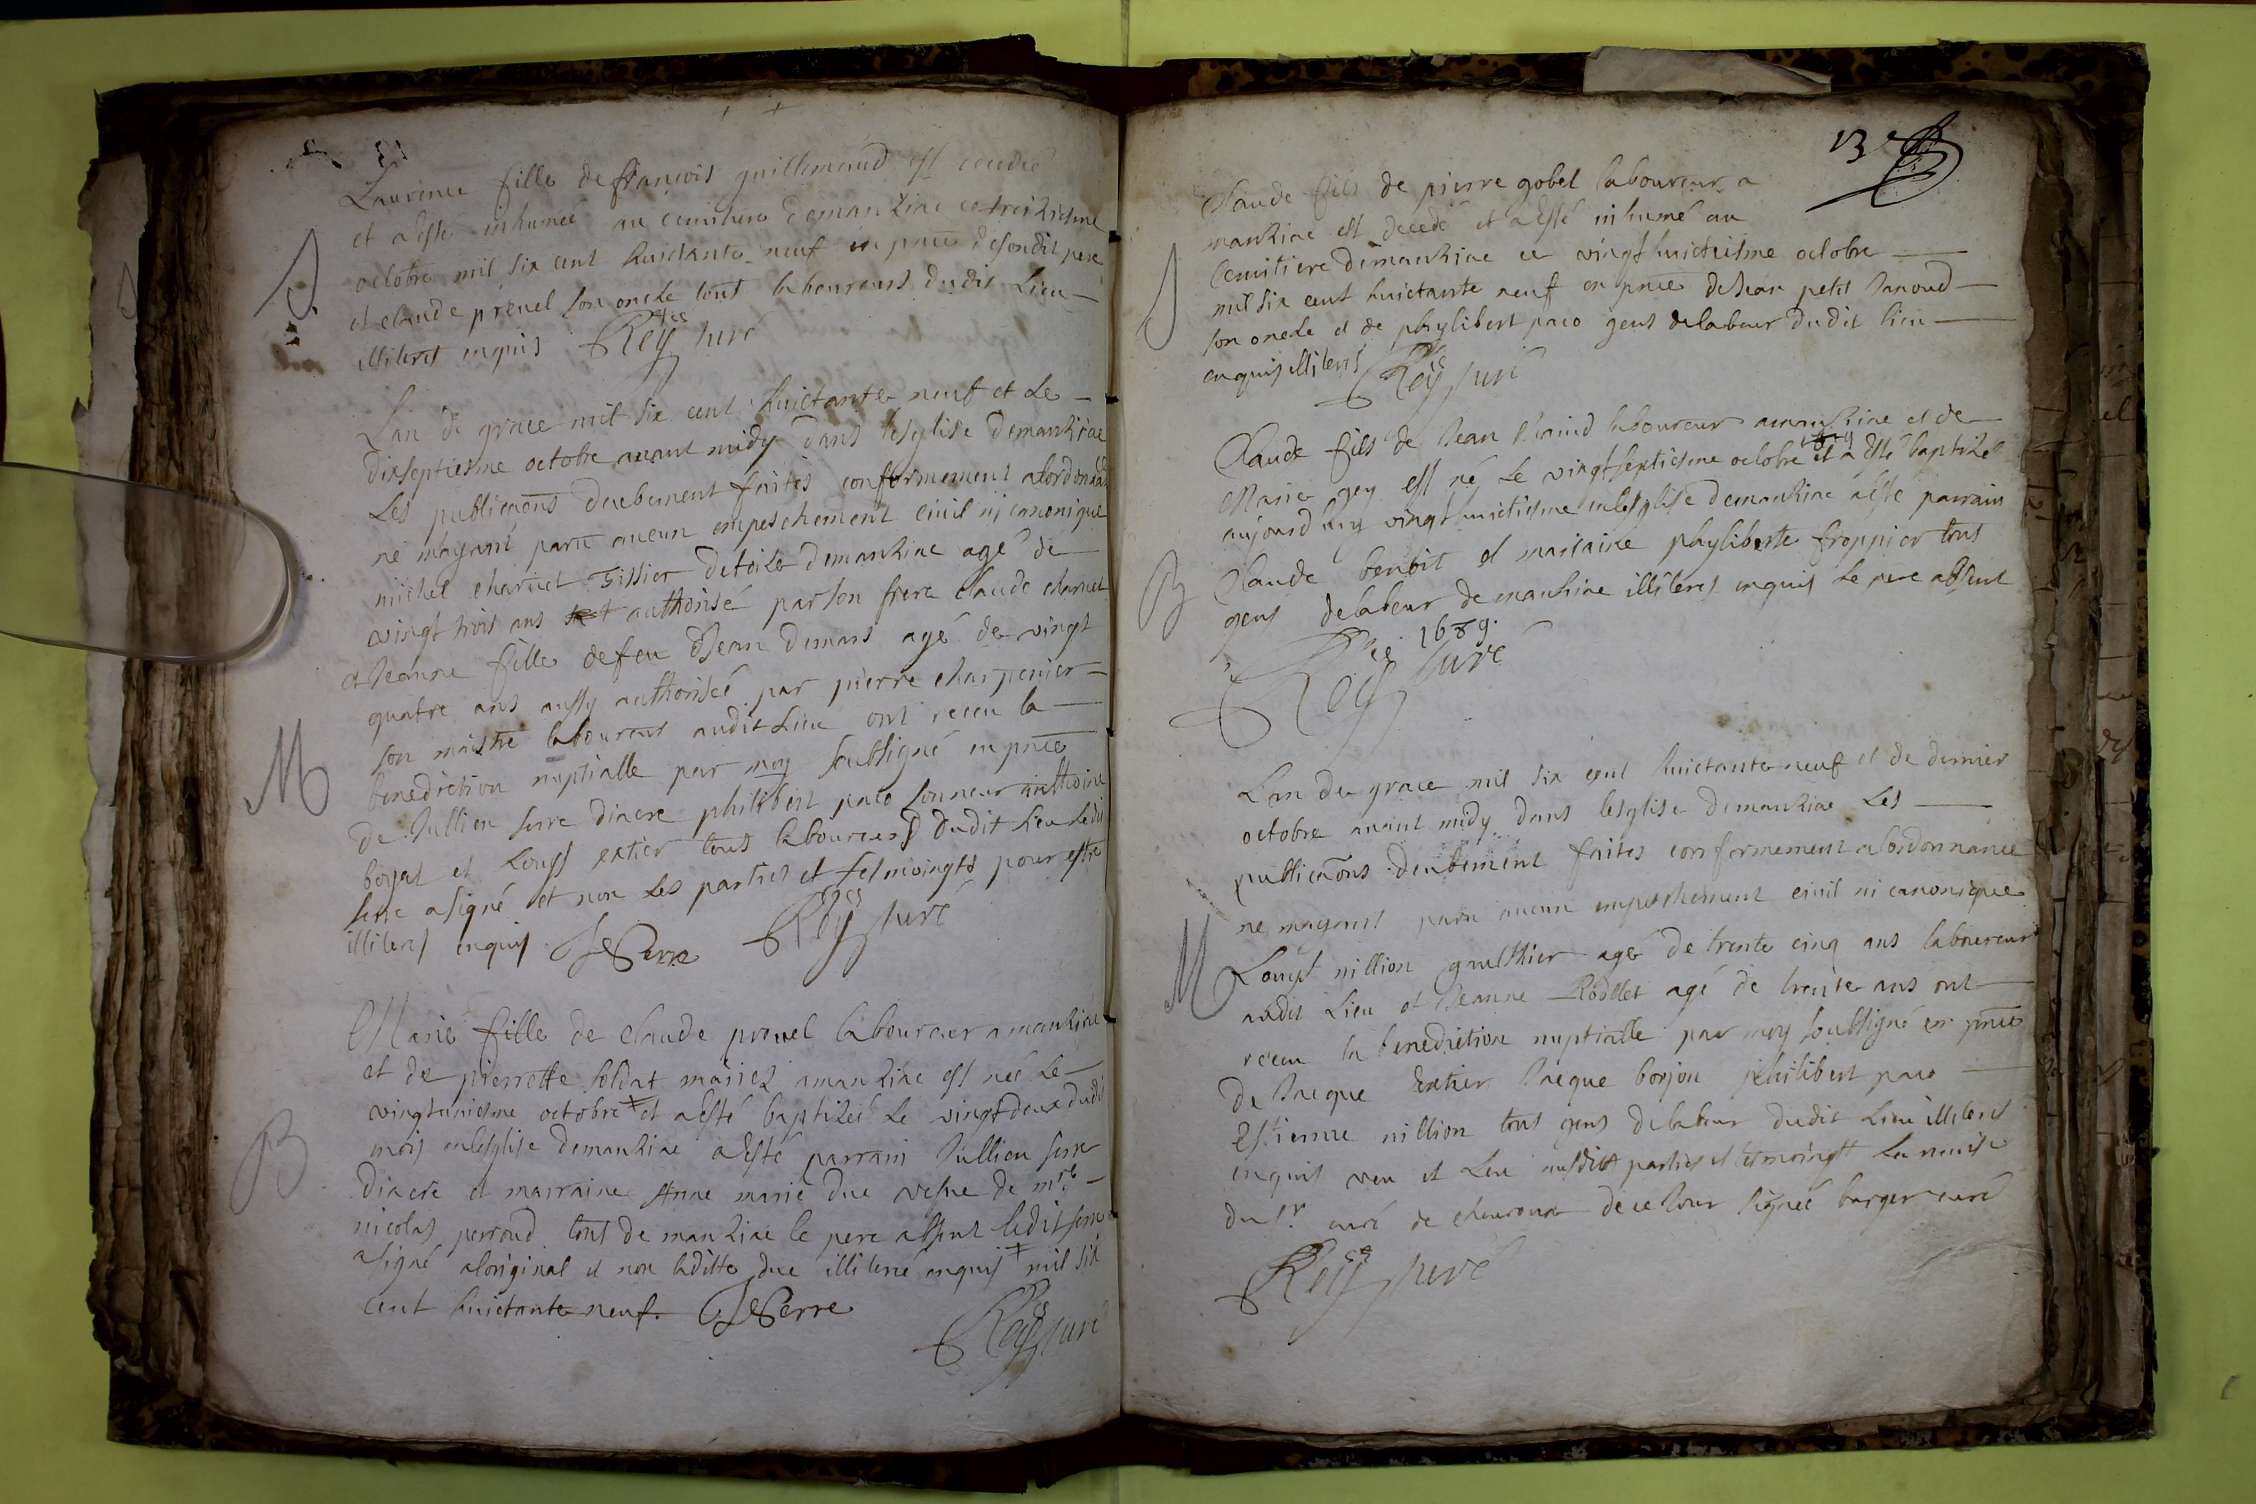 Laurence fille de françois guillemaud est
et a esté inhumée au cemitiere demanziac ce treiziesme
octobre mil six cent huictante neuf en pnce desondit pere
et claude prevel son oncle tous laboureurs dudit Lieu
illiteres enquis Rey curé
Lan de grace mil six cent huictante neuf et Le
dixseptiesme octobre avant midy dans lesglise demanziac
Les publicaons deuebement faites conformement alordonnance
ne mayant paru aucun empeschement civil ni canonique
michel charvet tissier detoile demanziac agé de
vingt trois ans authorisé par son frere claude charvet
et Jeanne fille defeu Jean Demars agé de vingt
quatre ans aussy authorisée par pierre charpenier
son maistre laboureur audit Lieu ont receu la
benediction nuptialle par moy soubsigné en pnce
de Jullien serre diacre philibert paco sonneur anthoine
boyat et Louys extier tous laboureurs dudit Lieu Ledit
serre a signé et non Les parties et tesmoingts pour estre
illiteres enquis Serre Rey curé
Marie fille de claude prevel laboureur amanziac
et de pierrette soldat mariez amanziac est neé Le
vingtuniesme octobre + et a esté baptizeé Le vingtdeux dudit
mois enlesglise demanziac a esté parrain Jullien serre
diacre et marraine Anne marie Duc vefve de mre
nicolas perroud tous de manziac le pere absent Ledit serre
a signé aloriginal et non laditte duc illiteré enquis + mil six
cent huictante neuf. Serre
Rey curé
13e
Claude fils de pierre gobel laboureur a
manziac est decedé et a esté inhumé au
Cemitiere demanziac ce vingt huictiesme octobre
mil six cent huictante neuf en pnce de Jean petit Janoud
son oncle et de phylibert paco gens delabeur dudit lieu
enquis illiteres Rey curé
Claude fils de Jean laboureur amanziac et de
Marie Joy est né Le vingtseptiesme octobre et a esté baptizé
aujourdhuy vingthuictiesme enlesglise demanziac a esté parrain
Claude benoit et marraine phyliberte froppier tous
gens delabeur de manziac illiteres enquis Le pere absent
1689.
Rey curé
Lan de grace mil six cent huictante neuf et de dernier
octobre avant midy dans lesglise demanziac Les
publicaons deuebement faites conformement alordonnance
ne mayant paru aucun empeschement civil ni canonique
Louys nillion gaulthier agé de trente cinq ans laboureur
audit Lieu et Jeanne Rodllet agé de trente ans ont
receu la benediction nuptialle par moy soubsigné en pnce
de Jacque Extier Jacque borjon philibert paco
Estienne nillion tous gens delabeur dudit Lieu illiteres
enquis veu et Leu ausdits parties et tesmoingts La remise
du sr curé de chevroux de ce Jour signeé burger curé
Rey curé